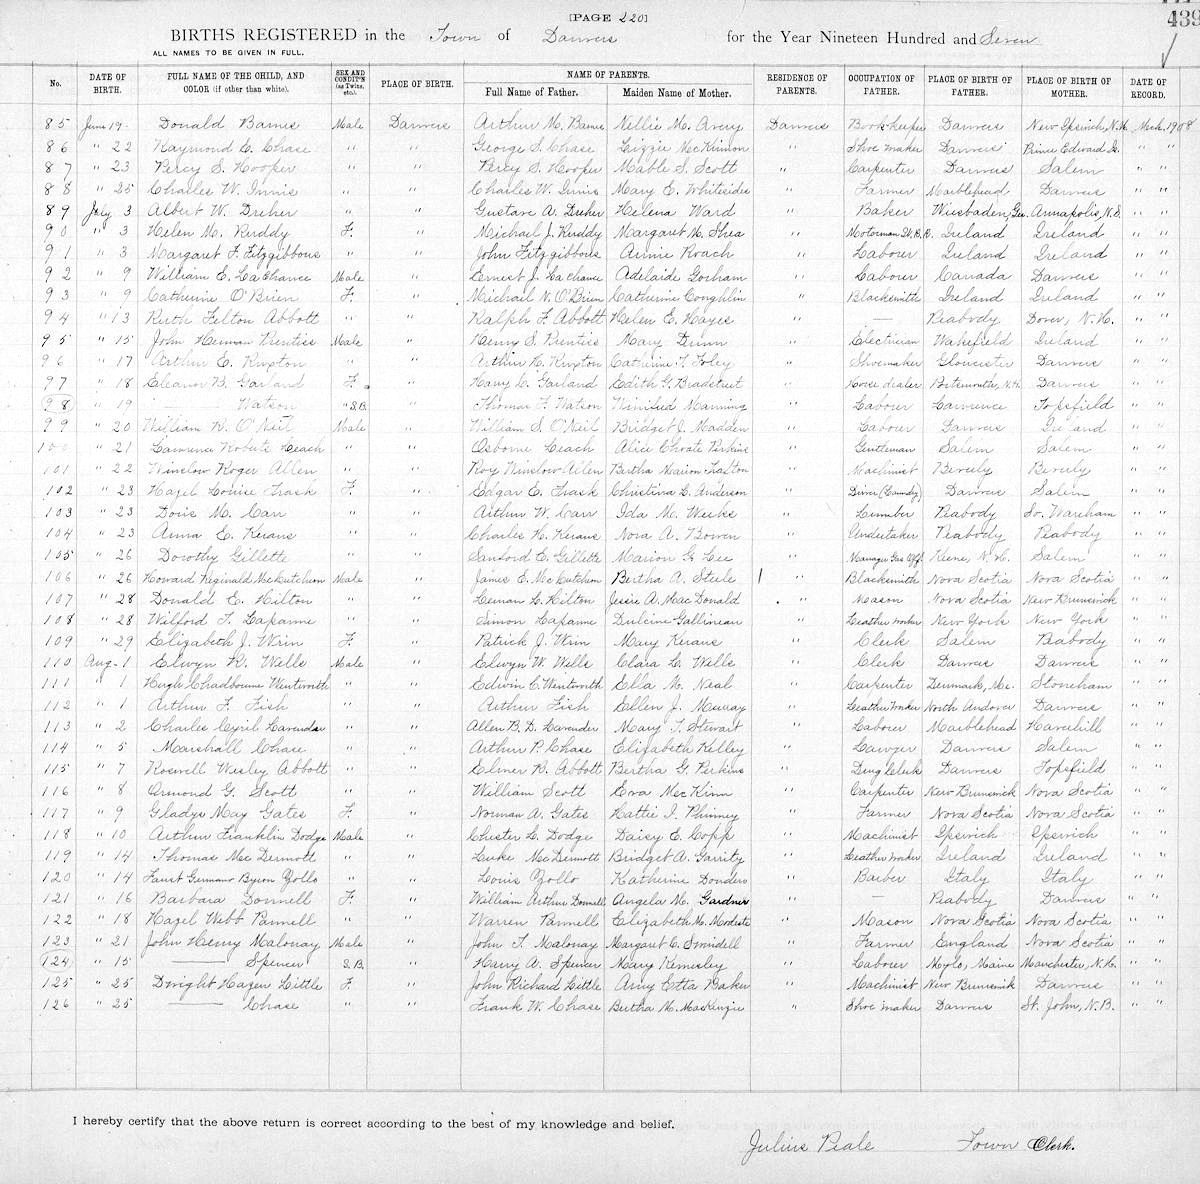 [PAGE 220]
439
BIRTHS REGISTERED in the Town of Danvers for the Year Nineteen Hundred and Seven
ALL NAMES TO BE GIVEN IN FULL.
No. DATE OF BIRTH. FULL NAME OF THE CHILD, AND COLOR (if other than white). SEX AND CONDIT'N (as Twins, etc.). PLACE OF BIRTH. NAME OF PARENTS. Full Name of Father. Maiden Name of Mother. RESIDENCE OF PARENTS. OCCUPATION OF FATHER. PLACE OF BIRTH OF FATHER. PLACE OF BIRTH OF MOTHER. DATE OF RECORD.
85 June 19 Donald Barnes Male Danvers Arthur M. Barnes Nellie M. Avery Danvers Bookkeeper Danvers New Ipswich, N.H. Mch. 1908
86 " 22 Raymond C. Chase " " George S. Chase Lizzie McKinnon " Shoe maker Danvers Prince Edward Is. " "
87 " 23 Percy S. Hooper " " Percy S. Hooper Mable S. Scott " Carpenter Danvers Salem " "
88 " 25 Charles W. Innis " " Charles W. Innis Mary E. Whitesides " Farmer Marblehead Danvers " "
89 July 3 Albert W. Dreher " " Gustave A. Dreher Helena Ward " Baker Wiesbaden, Ger. Annapolis, N.S. " "
90 " 3 Helen M. Ruddy F. " Michael J. Ruddy Margaret M. Shea " Motorman Ireland Ireland " "
91 " 3 Margaret F. Fitzgibbons " " John Fitzgibbons Annie Roach " Laborer Ireland Ireland " "
92 " 9 William E. LaChance Male " Ernest J. LaChance Adelaide Gorham " Laborer Canada Danvers " "
93 " 9 Catherine O'Brien F. " Michael N. O'Brien Catherine Coughlin " Blacksmith Ireland Ireland " "
94 " 13 Ruth Felton Abbott " " Ralph F. Abbott Helen E. Hayes " — Peabody Dover, N.H. " "
95 " 15 John Herman Prentiss Male " Henry S. Prentiss Mary Dunn " Electrician Wakefield Ireland " "
96 " 17 Arthur E. Knapton " " Arthur H. Knapton Catherine T. Foley " Shoemaker Gloucester Danvers " "
97 " 18 Eleanor B. Garland F. " Harry L. Garland Edith G. Bradstreet " Horse dealer Portsmouth, N.H. Danvers " "
98 " 19 — Watson " S.B. " Thomas F. Watson Winifred Manning " Laborer Lawrence Topsfield " "
99 " 20 William H. O'Neil Male " William S. O'Neil Bridget J. Madden " Laborer Danvers Ireland " "
100 " 21 Lawrence Roberts Leach " " Osborne Leach Alice Choate Perkins " Gentleman Salem Salem " "
101 " 22 Winslow Roger Allen " " Roy Winslow Allen Bertha Marion " Machinist Beverly Beverly " "
102 " 23 Hazel Louise Trask F. " Edgar E. Trask Christina L. Anderson " Driver (Laundry) Danvers Salem " "
103 " 23 Doris M. Carr " " Arthur W. Carr Ida M. Weeks " Lumber Peabody So. Wareham " "
104 " 23 Anna E. Kerans " " Charles H. Kerans Nora A. Bowen " Undertaker Peabody Peabody " "
105 " 26 Dorothy Gillette " " Sanford E. Gillette Marion G. Lee " Manager Gas Off. Keene, N.H. Salem " "
106 " 26 Howard Reginald McCutcheon Male " James E. McCutcheon Bertha A. Steele " Blacksmith Nova Scotia Nova Scotia " "
107 " 28 Donald E. Hilton " " Leman L. Hilton Jessie A. MacDonald " Mason Nova Scotia New Brunswick " "
108 " 28 Wilford T. Lapanne " " Simon Lapanne Dulcine Gallineau " Leather worker New York New York " "
109 " 29 Elizabeth J. Wrin F. " Patrick J. Wrin Mary Kerans " Clerk Salem Peabody " "
110 Aug. 1 Elwyn R. Wells Male " Elwyn W. Wells Clara L. Wells " Clerk Danvers Danvers " "
111 " 1 Hugh Chadbourne Wentworth " " Edwin C. Wentworth Ella M. Neal " Carpenter Denmark, Me. Stoneham " "
112 " 1 Arthur F. Fish " " Arthur Fish Ellen J. Murray " Leather worker North Andover Danvers " "
113 " 2 Charles Cyril Lavender " " Allen B. D. Lavender Mary T. Stewart " Laborer Marblehead Haverhill " "
114 " 5 Marshall Chase " " Arthur P. Chase Elizabeth Kelley " Lawyer Danvers Salem " "
115 " 7 Roswell Wesley Abbott " " Elmer B. Abbott Bertha G. Perkins " Drug Clerk Danvers Topsfield " "
116 " 8 Armond G. Scott " " William Scott Eva McKinn " Carpenter New Brunswick Nova Scotia " "
117 " 9 Gladys May Gates F. " Norman A. Gates Hattie I. Phinney " Farmer Nova Scotia Nova Scotia " "
118 " 10 Arthur Franklin Dodge Male " Chester L. Dodge Daisy E. Copp " Machinist Ipswich Ipswich " "
119 " 14 Thomas McDermott " " Luke McDermott Bridget A. Garrity " Leather worker Ireland Ireland " "
120 " 14 Faust Germano Byron Zollo " " Louis Zollo Katherine Dondero " Barber Italy Italy " "
121 " 16 Barbara Donnell F. " William Arthur Donnell Angela M. Gardner " — Peabody Danvers " "
122 " 18 Hazel Webb Pannell " " Warren Pannell Elizabeth M. Modeste " Mason Nova Scotia Nova Scotia " "
123 " 21 John Henry Malonay Male " John T. Malonay Margaret C. Smidell " Farmer England Nova Scotia " "
124 " 15 — Spencer S.B. " Harry A. Spencer Mary Kemsley " Laborer Maine Manchester, N.H. " "
125 " 25 Dwight Hazen Little F " John Richard Little Amy Etta Baker " Machinist New Brunswick Danvers " "
126 " 25 — Chase " " Frank W. Chase Bertha M. MacKenzie " Shoe maker Danvers St. John, N.B. " "
I hereby certify that the above return is correct according to the best of my knowledge and belief.
Julius Peale Town Clerk.